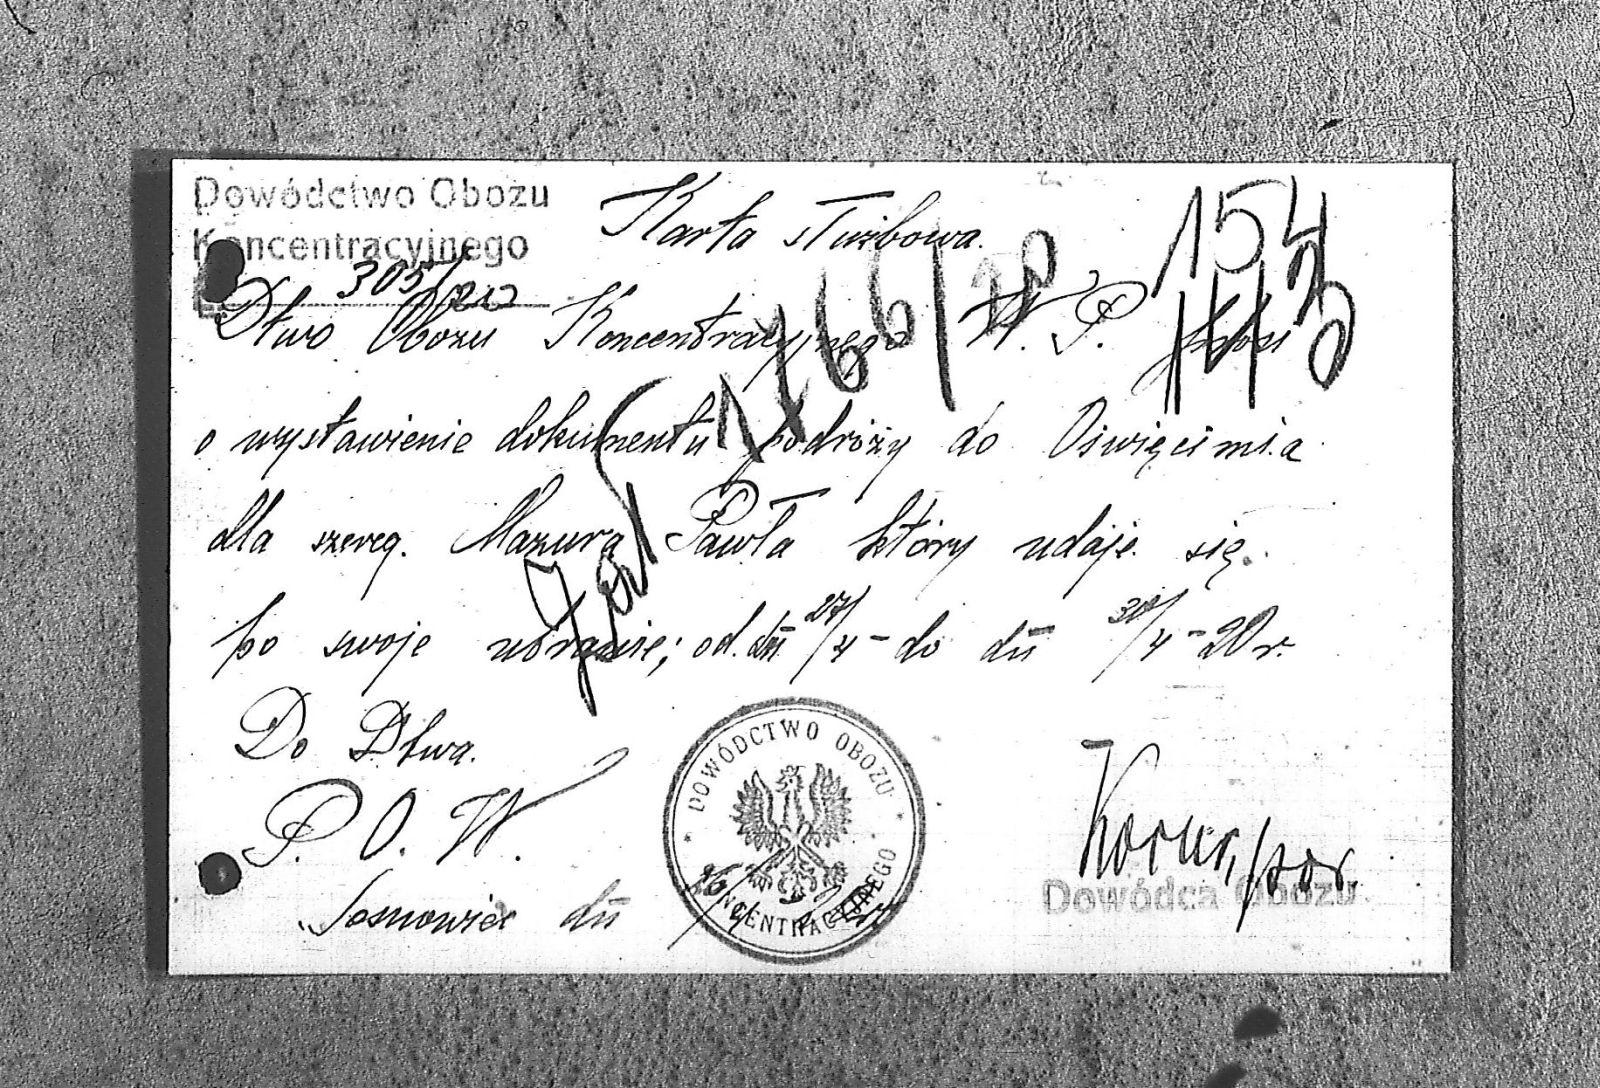 Dowództwo Obozu
Koncentracyjnego
305/
Karta służbowa.
154
1166/20
Dtwo Obozu Koncentracyjnego W. P. prosi
o wystawienie dokumentu podróży do Oświęcimia
dla szereg. Mazura Pawła który udaje się
po swoje ubranie; od. dn. 27/4 - do dn 30/4 - 20 r.
Do Dtwa.
P. O. W.
Sosnowiec dn 26/4
DOWÓDCTWO OBOZU KONCENTRACYJNEGO
por.
Dowódca Obozu